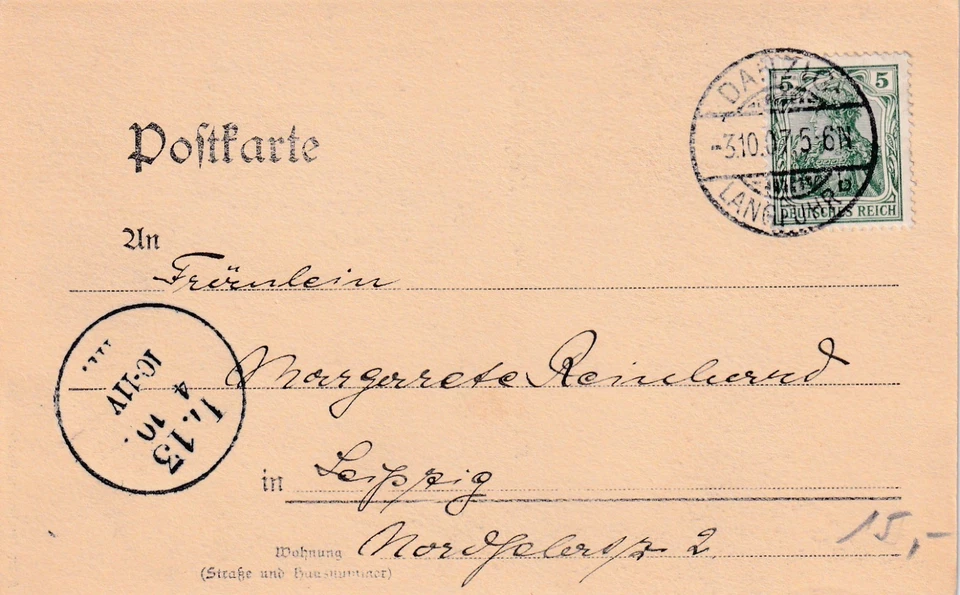 5 5
DANZIG
-3.10.07.5-6N
LANGFUHR
b
DEUTSCHES REICH
Postkarte
An
Fräulein
Margarete Reinhard
L. 13
4 10
10-11V
in Leipzig
Wohnung
(Straße und Hausnummer)
2
15,-